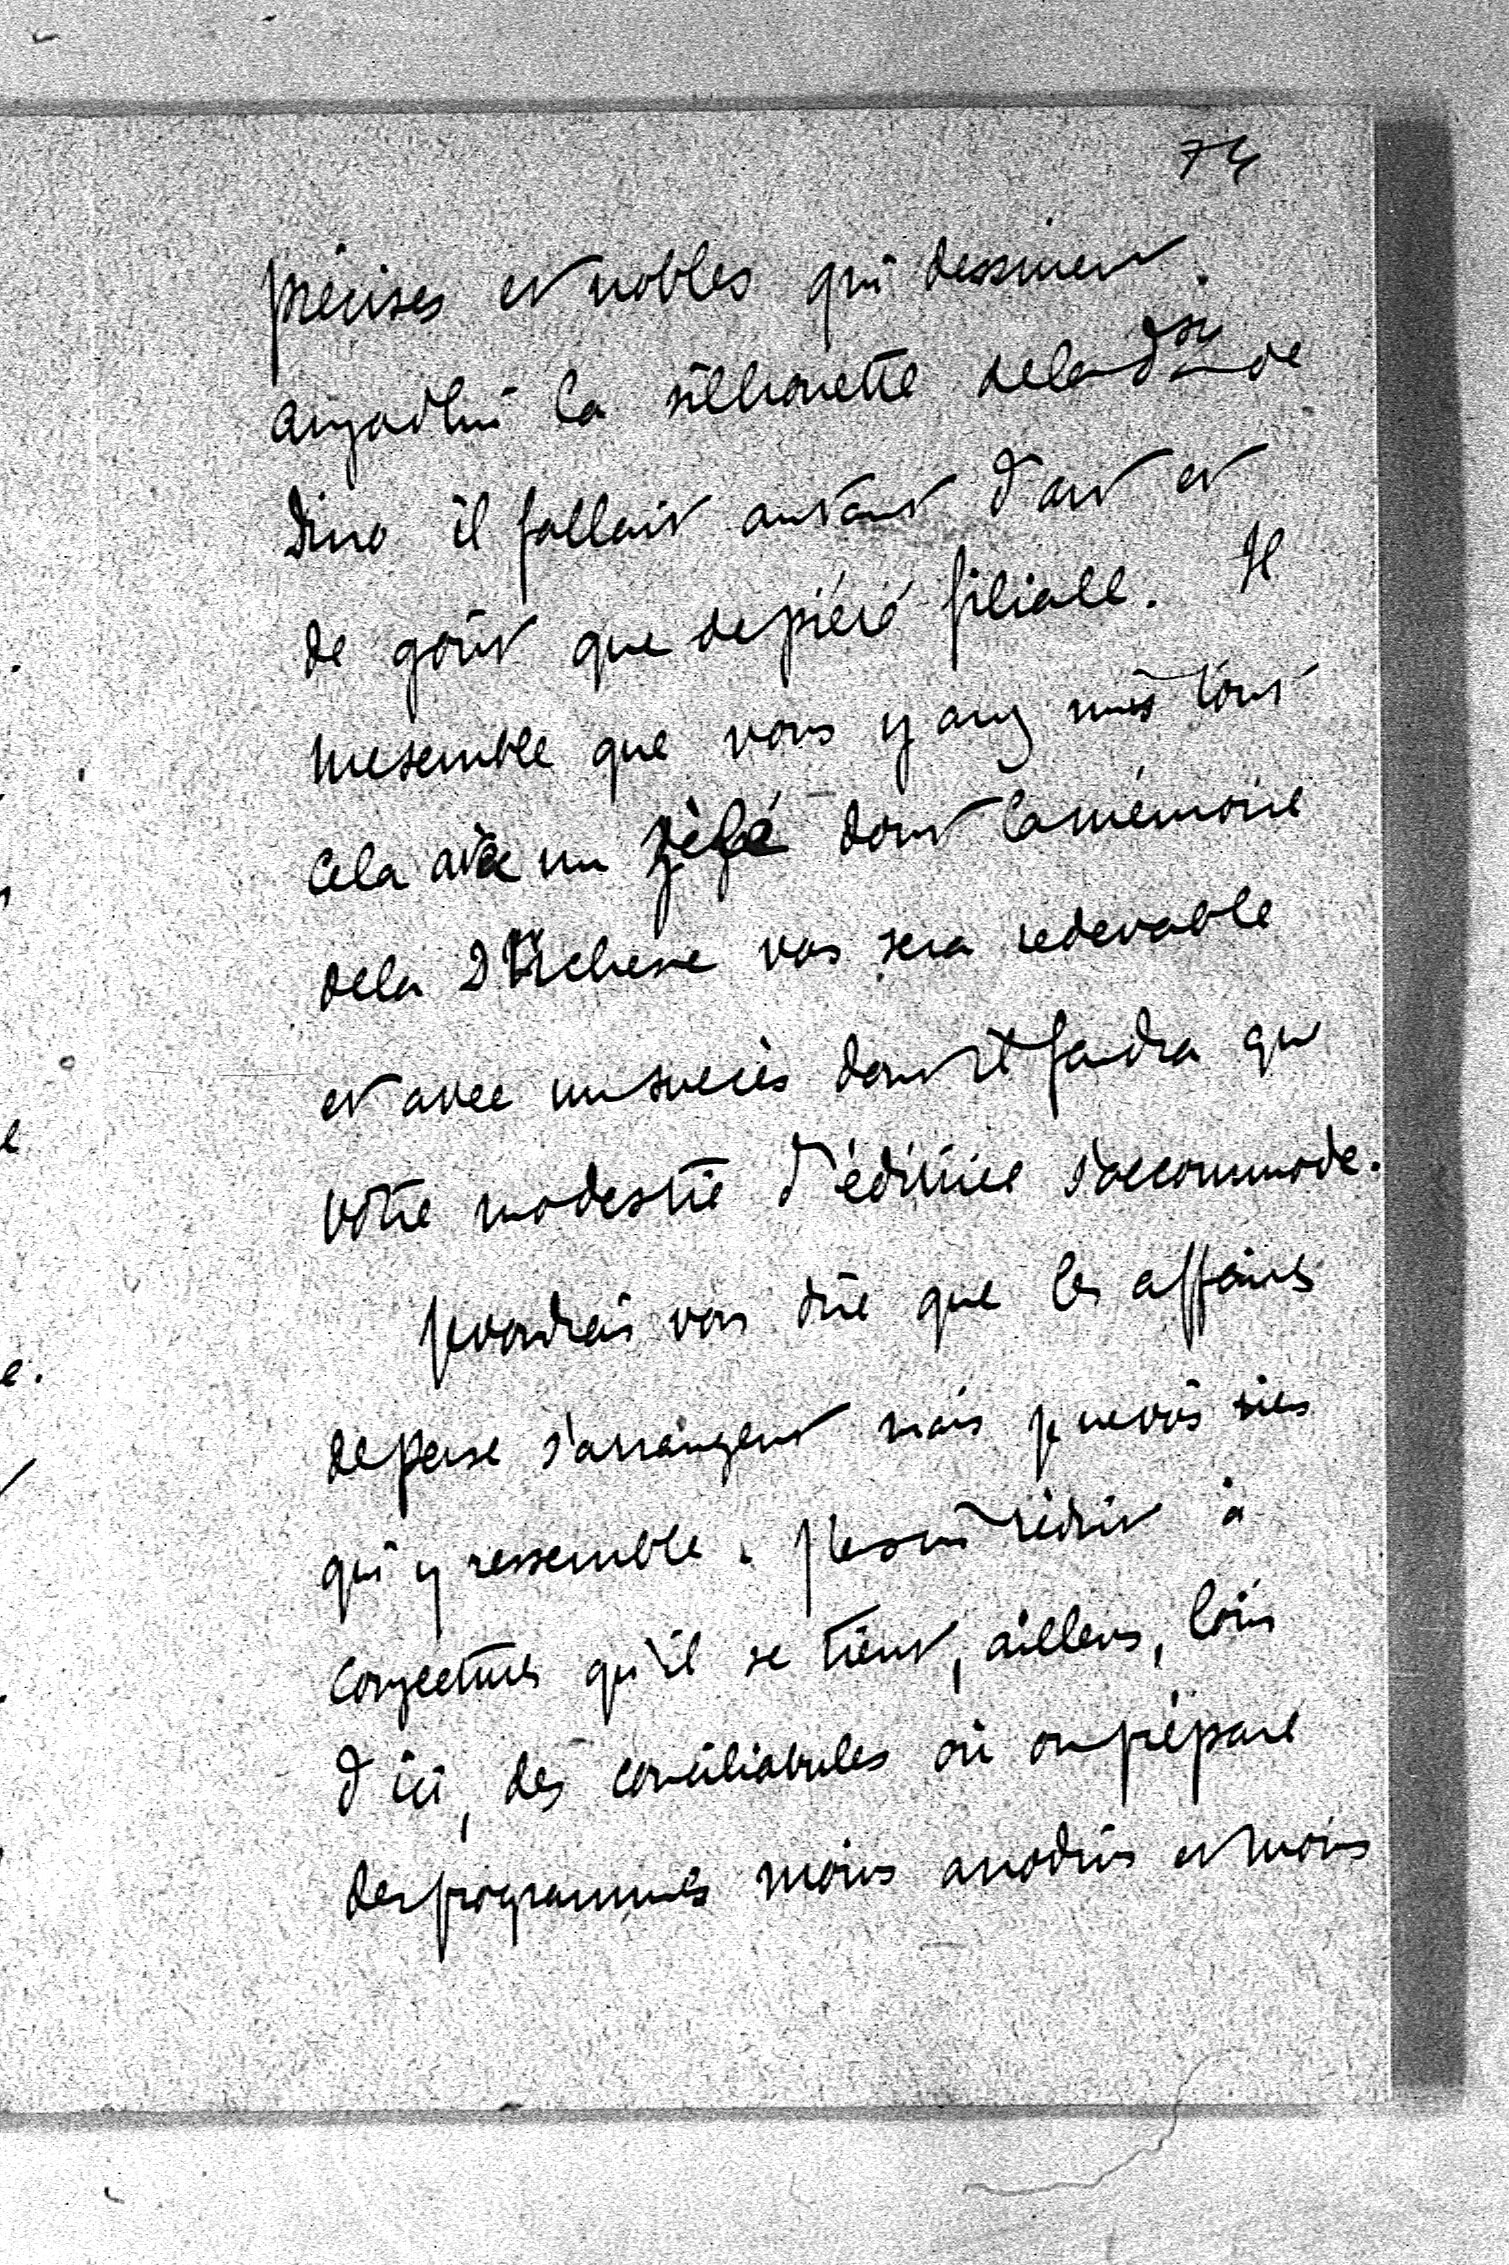 74
précises et nobles qui dessinent
aujourd'hui la silhouette de la Dsse de
Dino il fallait autant d'art et
de goût que de piété filiale. Il
me semble que vous y avez mis tout
cela avec un zèle dont la mémoire
de la Duchesse vous sera redevable
et avec un succès dont il faudra que
votre modestie d'éditrice s'accommode.
Je voudrais vous dire que les affaires
de Perse s'arrangent mais je ne vois rien
qui y ressemble. Je suis réduit à
conjecturer qu'il se tient, ailleurs, loin
d'ici, des conciliabules où on prépare
des programmes moins anodins et moins